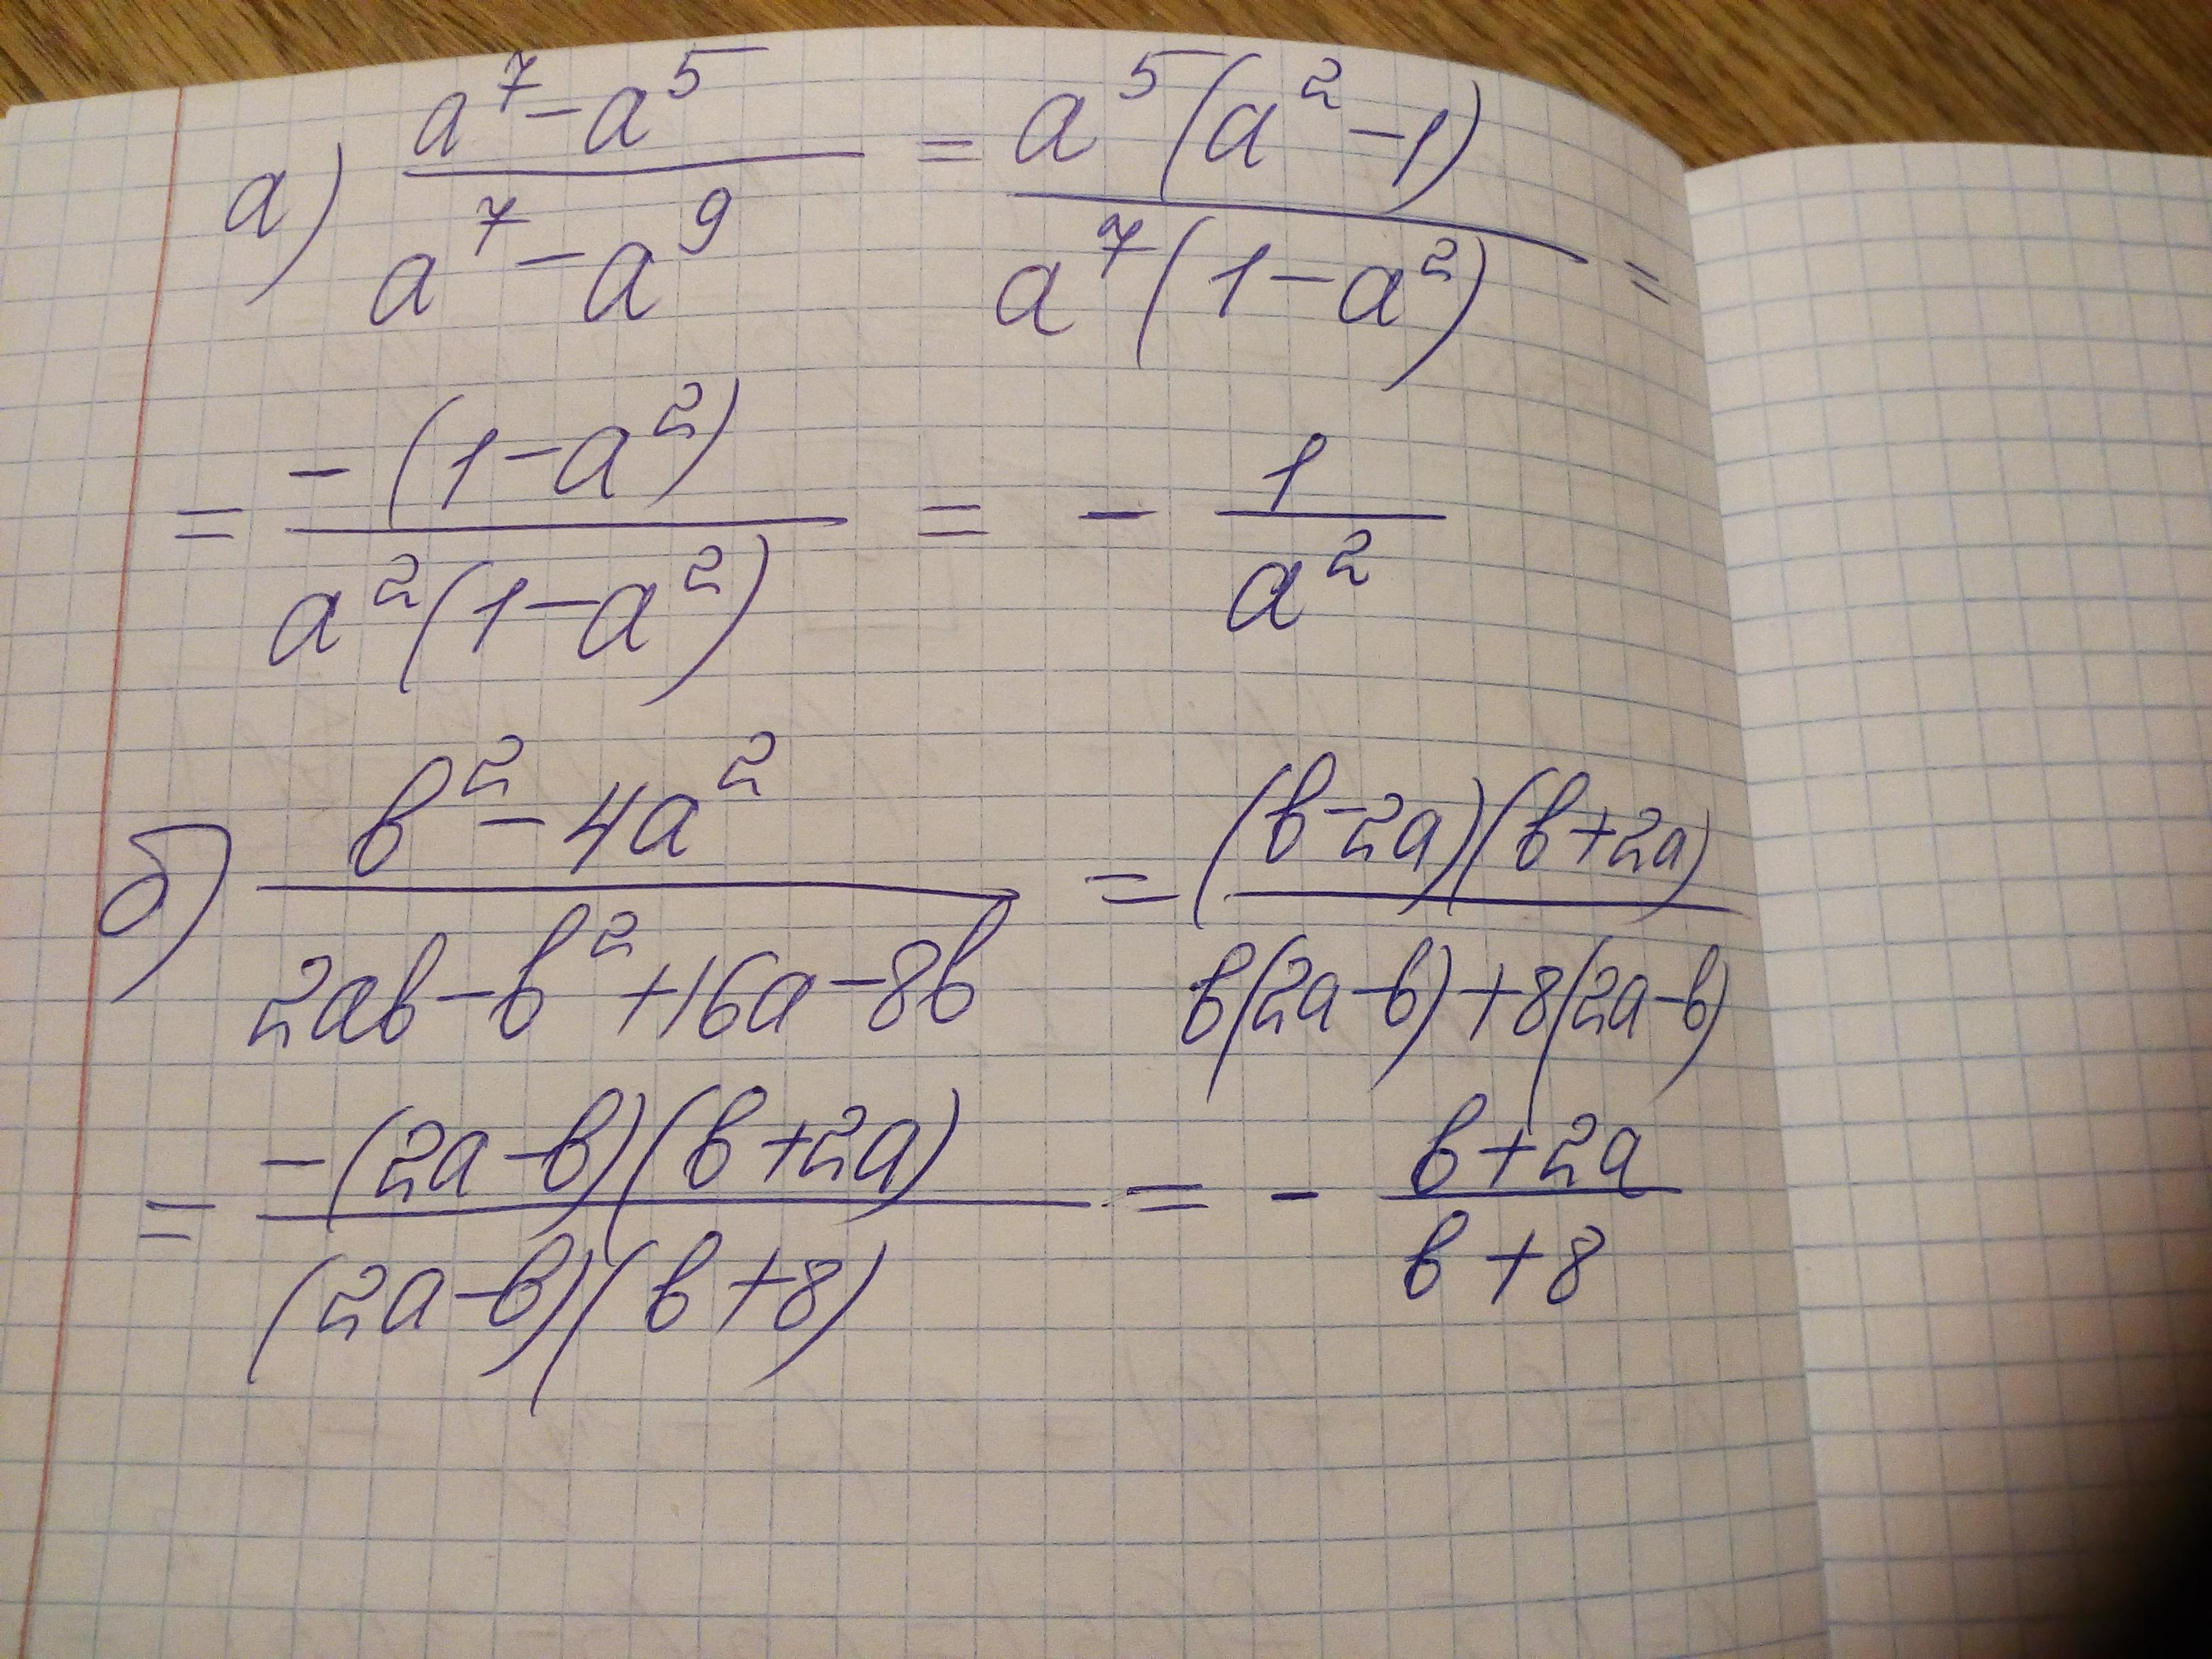 а) (a⁷-a⁵)/(a⁷-a⁹) = (a⁵(a²-1))/(a⁷(1-a²)) =
= (-(1-a²))/(a²(1-a²)) = - 1/a²
б) (b²-4a²)/(2ab-b²+16a-8b) = ((b-2a)(b+2a))/(b(2a-b)+8(2a-b))
= (-(2a-b)(b+2a))/((2a-b)(b+8)) = - (b+2a)/(b+8)